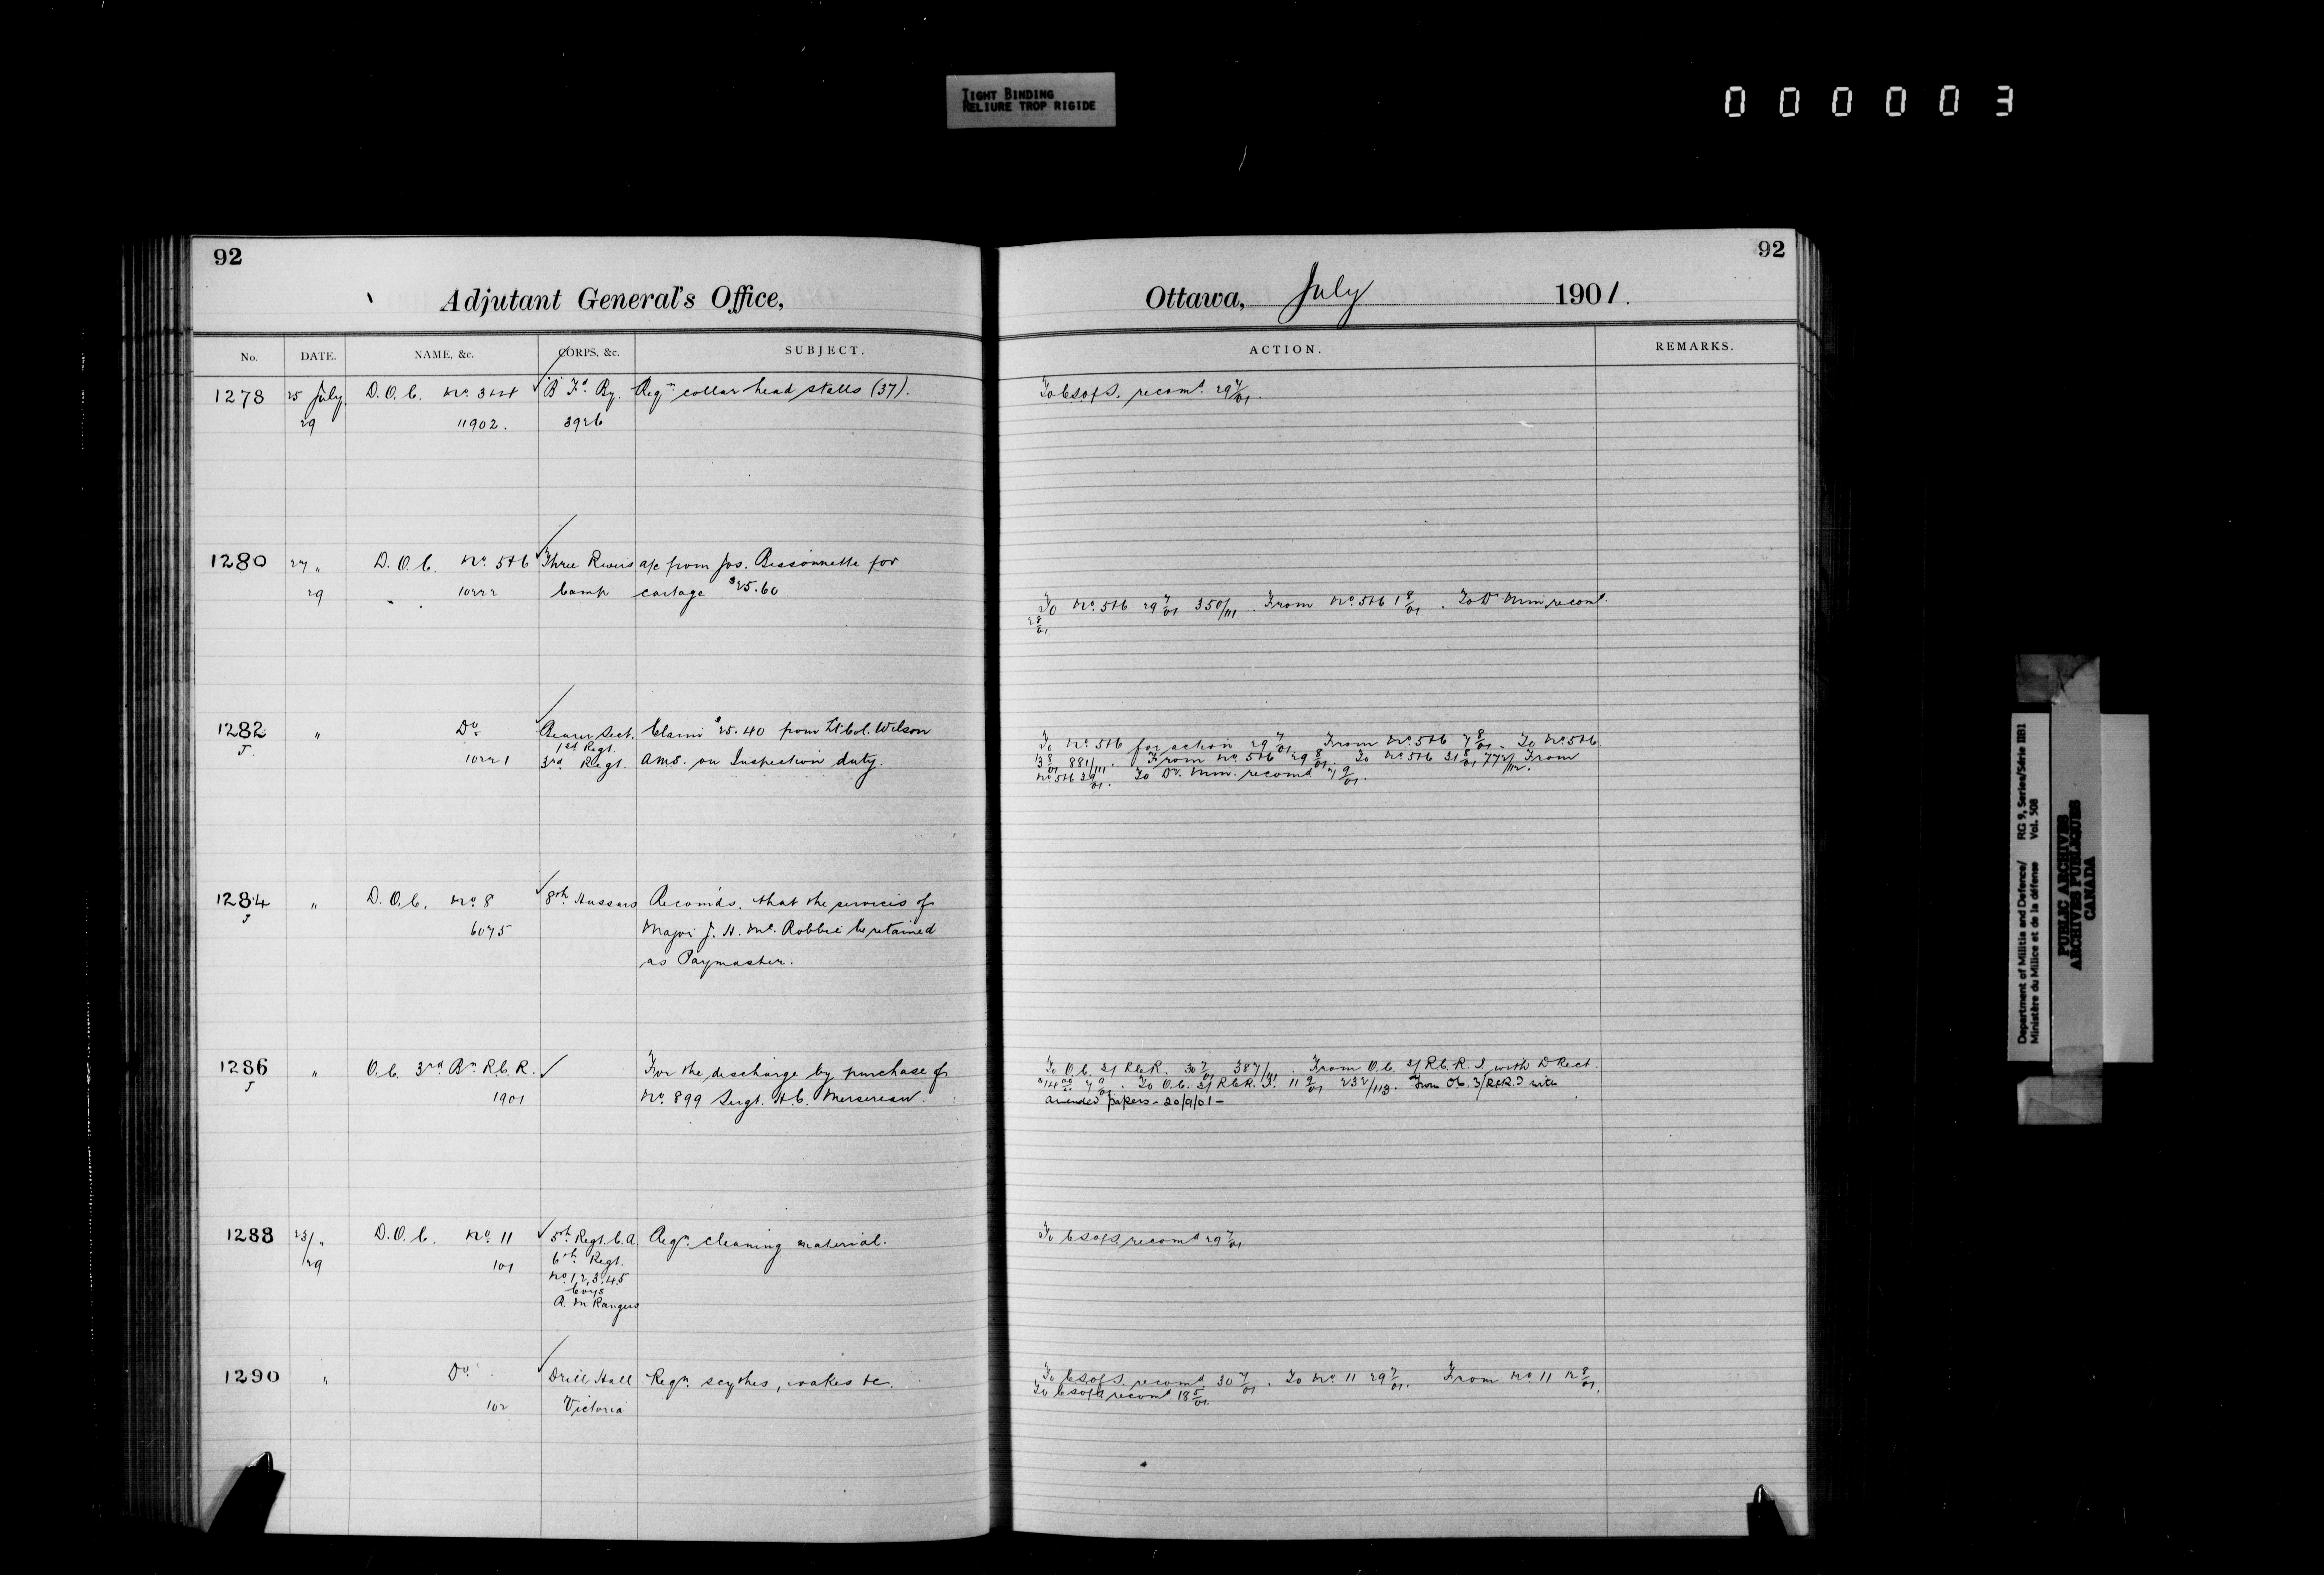 TIGHT BINDING
RELIURE TROP RIGIDE
0 0 0 0 0 3
92
Adjutant General's Office,
No. DATE. NAME, &c. CORPS, &c. SUBJECT.
1278 25 July D.O.C. No. 3&4 "B" Fd. By. Reqn. collar head stalls (37).
29 11902. 3926
1280 27 " D.O.C. No. 5&6 Three Rivers a/c from Jos. Bissonnette for
29 10222 Camp cartage $25.60
1282 " Do Bearer Sect. Claim $25.40 from Lt. Col. Wilson
J. 1st Regt.
10221 3rd Regt. AMS. on Inspection duty.
1284 " D.O.C. No. 8 8th Hussars Recomds. that the services of
J 6075 Major J. H. Mc. Robbie be retained
as Paymaster.
1286 " O.C. 3rd Bn R.C.R. For the discharge by purchase of
J 1901 No. 899 Sergt. H.C. Mersereau.
1288 23/ " D.O.C. No. 11 5th Regt. C.A. Reqn. cleaning material.
/29 101 6th Regt.
No. 1, 2, 3, 4, 5
Coys
R. M Rangers
1290 " Do. Drill Hall Reqn. scythes, rakes &c.
102 Victoria
92
Ottawa, July 1901.
ACTION. REMARKS.
To CS of S. recomd. 29 7/01.
To No. 5&6 29 7/01 350/111. From No. 5&6 1 8/01. To Dr. Min recomd.
2 8/01
To No. 5&6 for action 29 7/01. From No. 5&6 7 8/01. To No. 5&6
13 8/01 881/111. From No. 5&6 29 8/01. To No. 5&6 31 8/01 772/112. From
No. 5&6 3 9/01. To Dr. Min. recomd 7 9/01.
To O.C. 3/R.C.R. 30 7/01 387/111. From O.C. 3/R.C.R.I. with D Rect.
$14.00 7 9/01. To O.C. 3/R.C.R.I. 11 9/01 232/113. From O.C. 3/RCR.I with
amended papers - 20/9/01 -
To CS of S. recomd 29 7/01
To CS of S. recomd. 30 7/01. To No. 11 29 7/01. From No. 11 12 8/01.
To CS of S recomd. 18 8/01.
Department of Militia and Defence/ RG 9, Series/Série IIB1
Ministère du Milice et de la défense Vol. 508
PUBLIC ARCHIVES
ARCHIVES PUBLIQUES
CANADA